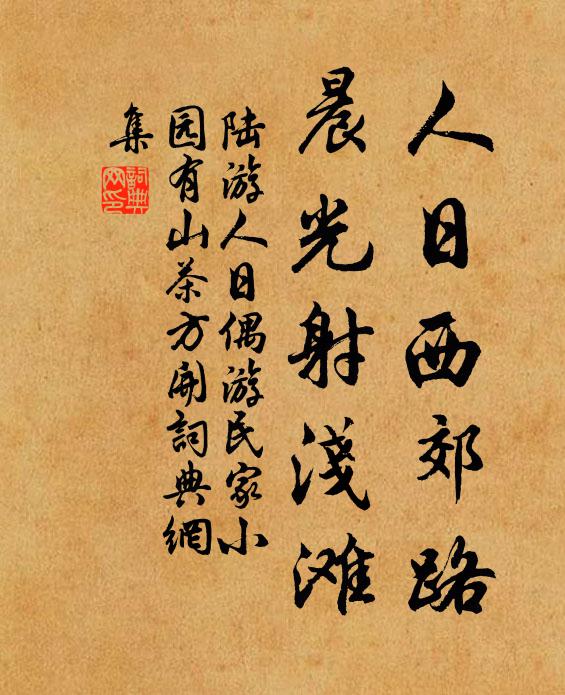 人日西郊路
晨光射淺滩
陆游人日偶游民家小
园有山茶方開詞典網
集
詞典网印